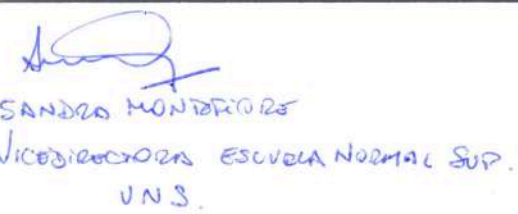 SANDRA MONTEFIORE
VICEDIRECTORA ESCUELA NORMAL SUP.
UNS.